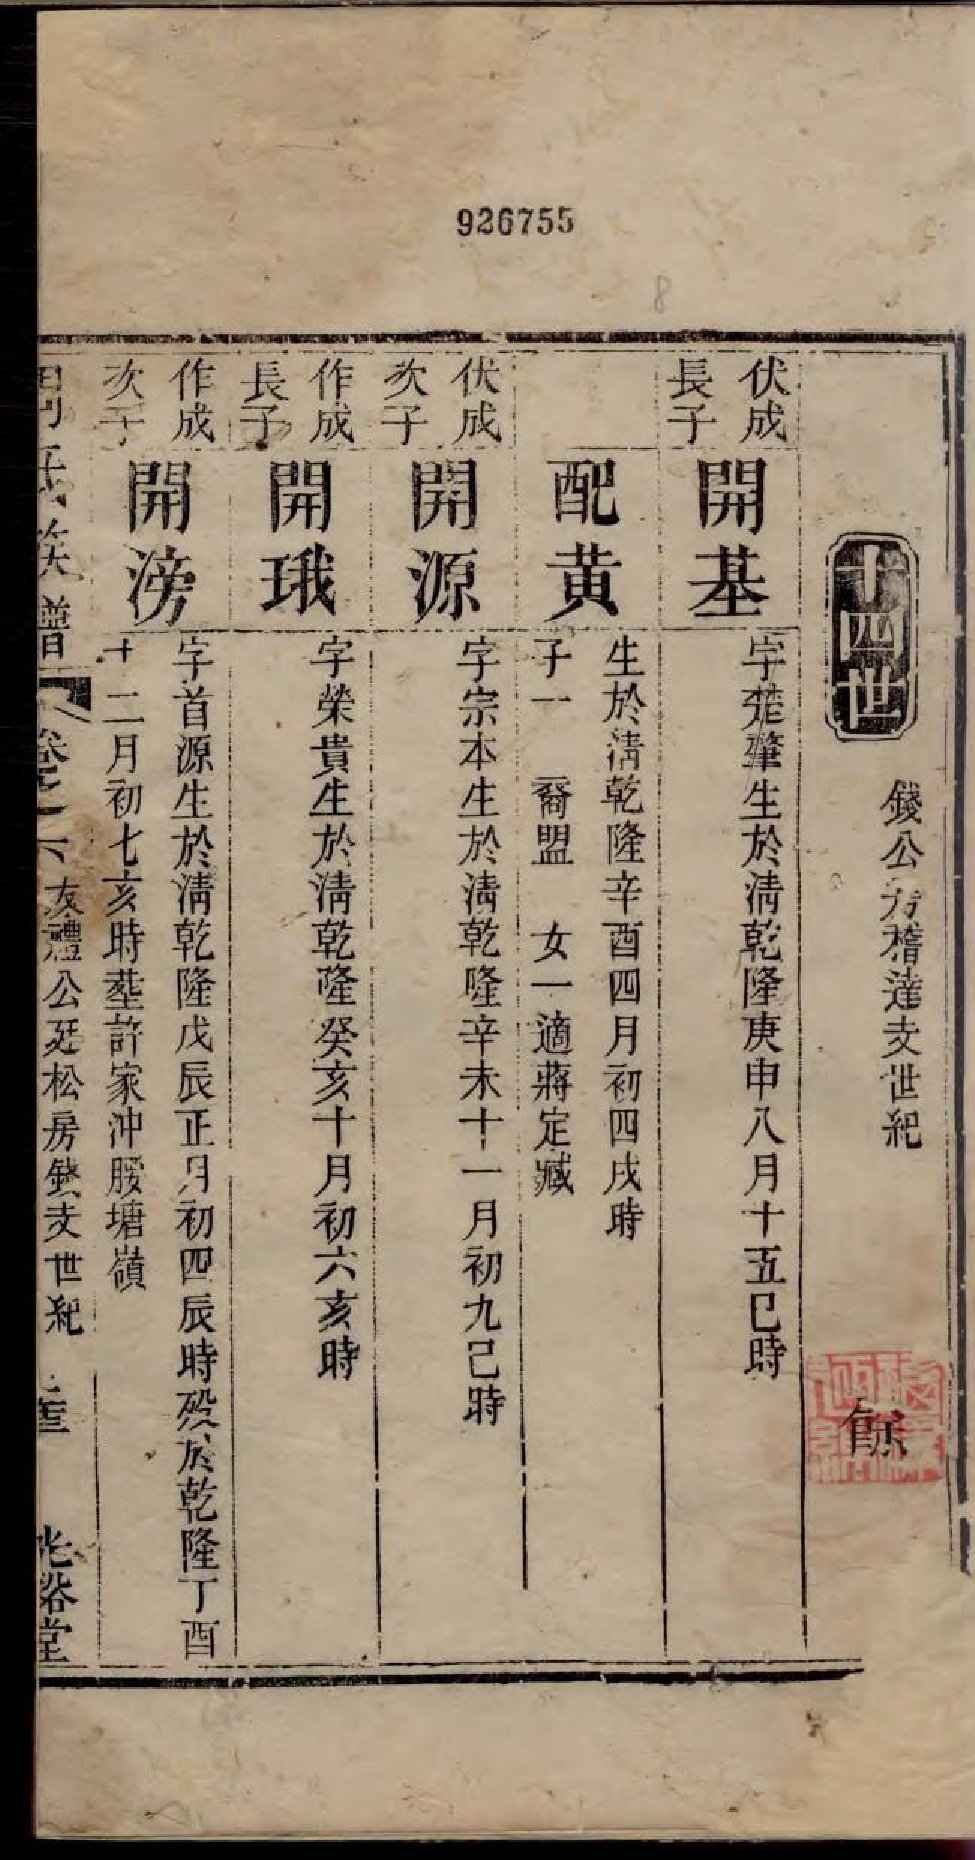 926755
8
錢公房稽達支世紀
十四世
伏成
長子
開基
字楚肇生於清乾隆庚申八月十五巳時
配黄
生於清乾隆辛酉四月初四戌時
子一 裔盟 女一適蔣定臧
伏成
次子
開源
字宗本生於清乾隆辛未十一月初九巳時
作成
長子
開珴
字榮貴生於清乾隆癸亥十月初六亥時
作成
次子
開滂
字首源生於清乾隆戊辰正月初四辰時殁於乾隆丁酉
十二月初七亥時塟許家沖塘嶺
氏族譜
卷之六
友禮公廷松房錢支世紀
光裕堂